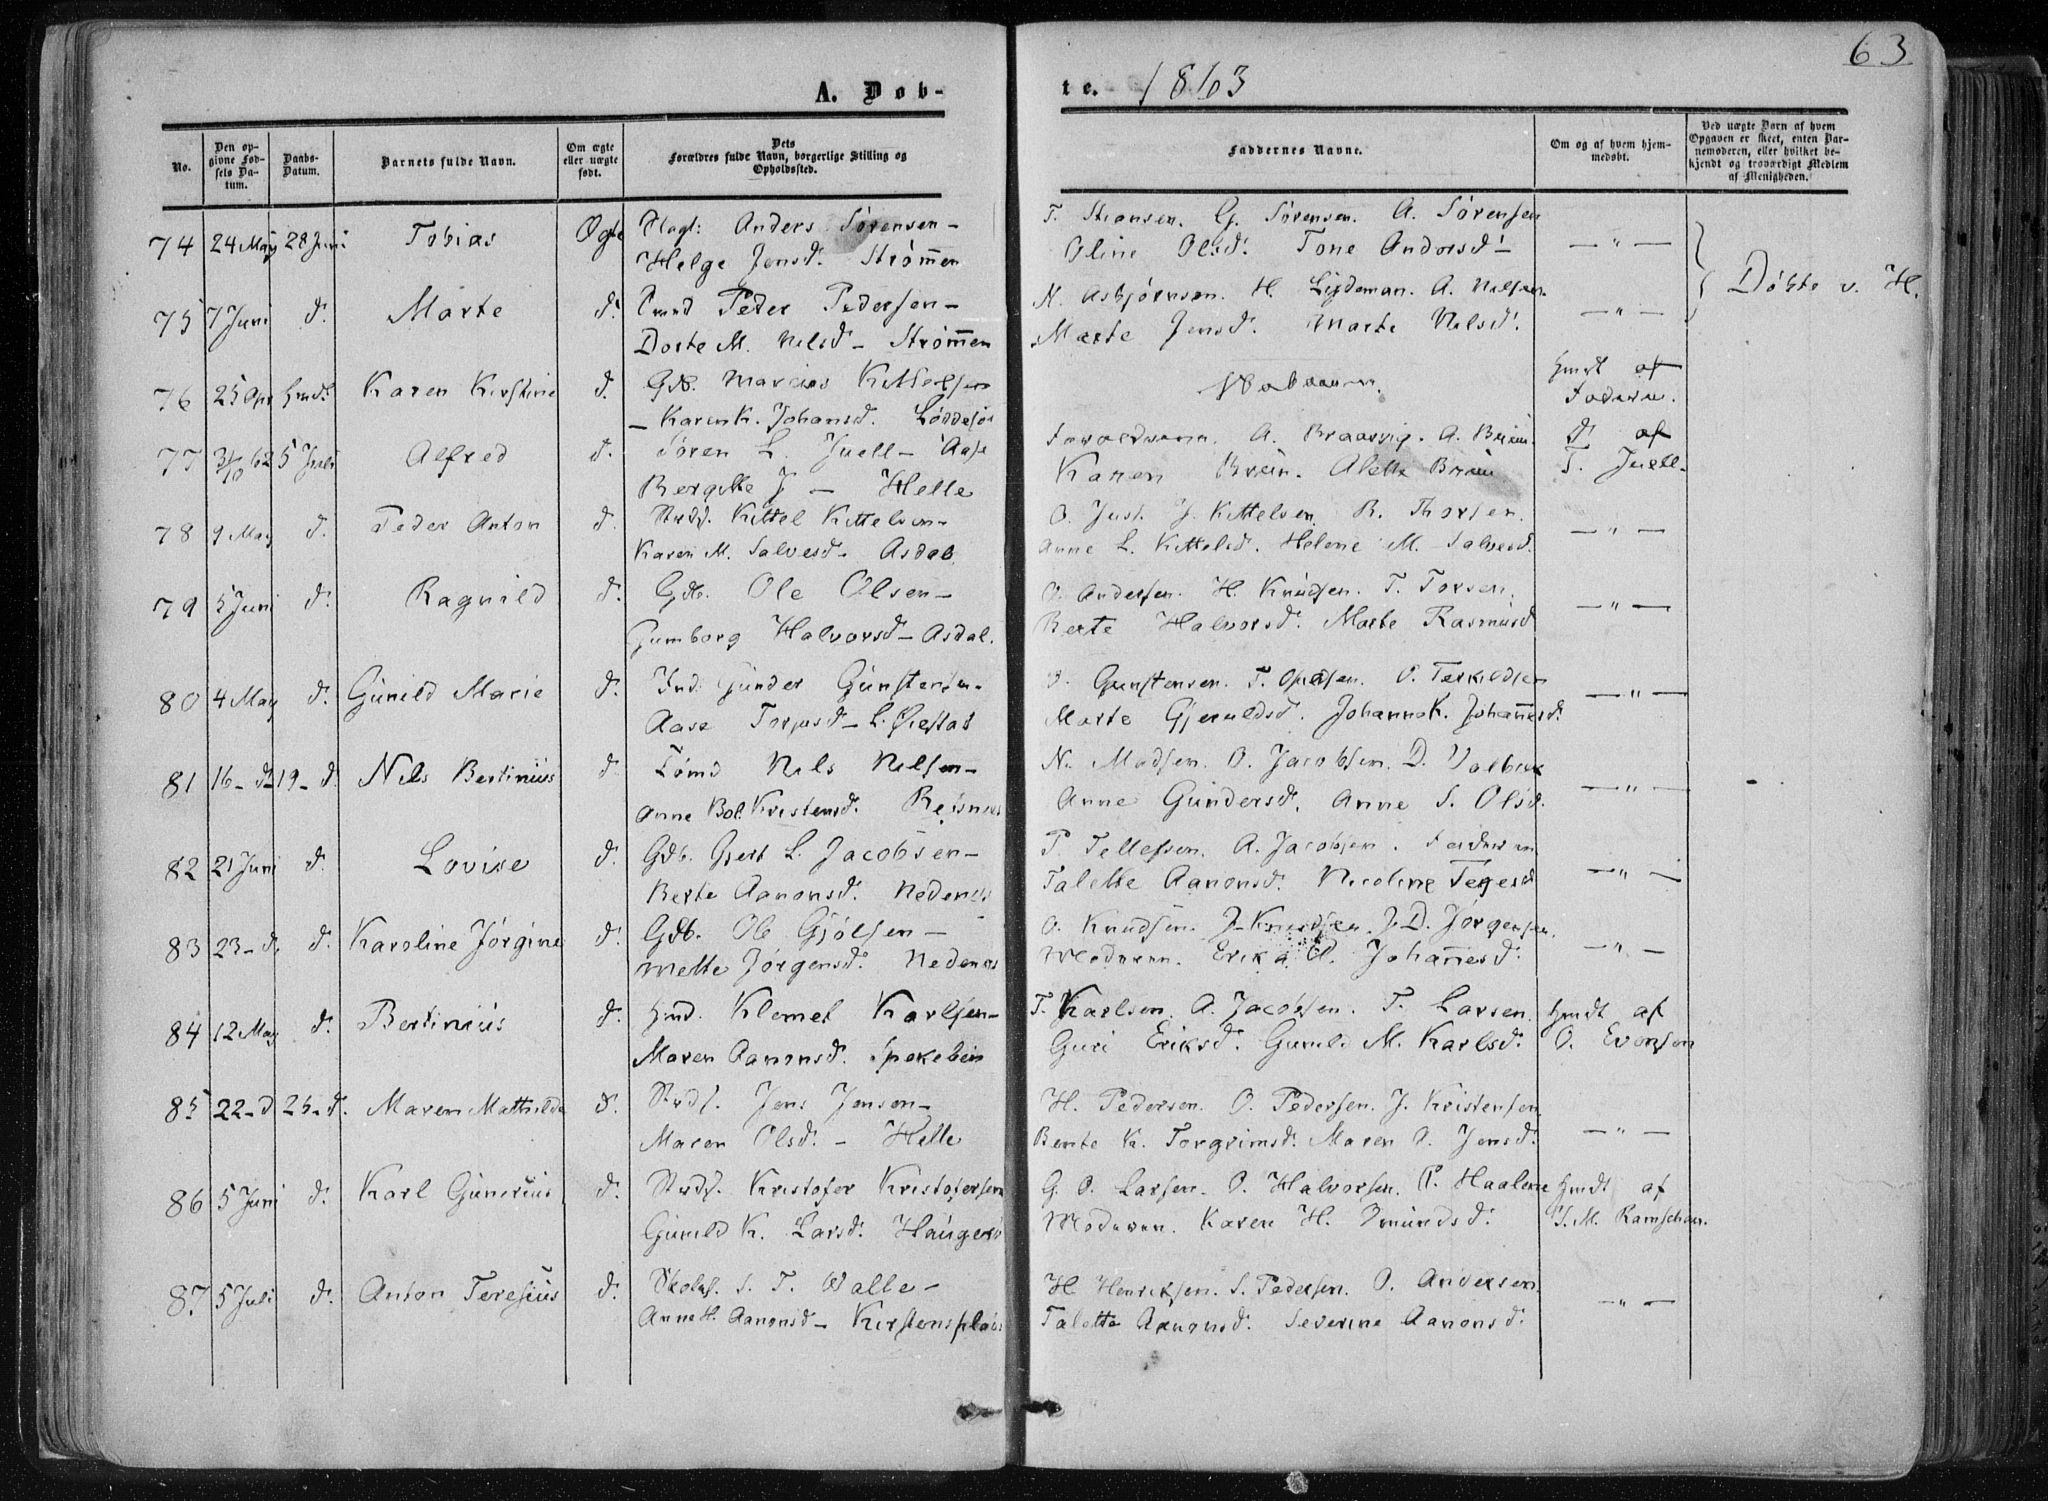 63
A. Døb-
te. 1863
No.
Den op-
givne Fød-
sels Da-
tum.
Daabs-
Datum.
Barnets fulde Navn.
Om ægte
eller uægte
født.
Dets
Forældres fulde Navn, borgerlige Stilling og
Opholdssted.
Faddernes Navne.
Om og af hvem hjem-
medøbt.
Ved uægte Børn af hvem
Opgaven er skeet, enten Bar-
nemoderen, eller hvilket be-
kjendt og troværdigt Medlem
af Menigheden.
74 24 May 28 Juni Tobias Ægte Anders Sørensen – T. G. Sørensen. A. Sørensen
Helge Jensd. Strømmen Oline Olsd. Tone Andersd. – " –
Døbte v. H.
75 7 Juni d. Marte d. Peder Pedersen – N. Asbjørnsen. H. A. Nilsen.
Dorte M. Nilsd – Strømmen Marte Jensd. Marte Nilsd. – " –
76 25 Apr Hmdt Karen Kirstine d. Gdb. Marcus Kittelsen Hmdt af
– Karen K. Johansd. Faderen.
77 3/10 62 5 Juli Alfred d. Søren L. Juell – Aase A. Braavig. A. d. af
Bergitte J – Helle Karen Alette T. Juell.
78 9 May d. Peder Anton d. Strds. Kittel Kittelsen – O. Just. J. Kittelsen. R. Thorsen.
Karen M. Salvesd. Asdal. Anne L. Kittelsd. Helene M. Salvesd. – " –
79 5 Juni d. Ragnild d. Gdb. Ole Olsen – O. Andersen. H. Knudsen. T. Torsen.
Gumborg Halvorsd – Asdal. Berte Halvorsd. Marte Rasmusd – " –
80 4 May d. Gunild Marie d. Ind. Gunder Gunstensen. Gunstensen. T. O. Terkildsen
Aase Torjusd – L. Øiestad Marte Gjeruldsd. Johanne K. Johannesd. – " –
81 16 – d. 19 – d. Nils Bertinius d. Nils Nilsen – N. Madsen. O. Jacobsen. D.
Anne Bol. Kristensd. Anne Gundersd. Anne S. Olsd. – " –
82 21 Juni d. Lovise d. Gdb. Gjert L. Jacobsen – P. Tellefsen. A. Jacobsen. Faderen
Berte Aanonsd. Nedenes Talette Aanonsd. Nicoline – " –
83 23 – d. d. Karoline Jørgine d. Gdb. Ole – O. Knudsen. J. Knudsen. J. D. Jørgensen.
Mette Jørgensd. Nedenes Moderen. Erika Johannesd. – " –
84 12 May d. Bertinius d. Hmd. Klemet Karlsen – T. Karlsen. A. Jacobsen. T. Larsen. Hmdt af
Maren Aanonsd. Spekebein Guri Eriksd. Gunild M. Karlsd. O. Evensen
85 22 – d 25 – d. Maren Mathilde d. Strds. Jens Jensen – H. Pedersen. O. Pedersen. J. Kristensen
Maren Olsd. – Helle Bente K. Torgrimsd. Maren O. Jensd. – " –
86 5 Juni d. Karl Gunerius d. Strds. Kristofer Kristofersen G. O. Larsen. O. Halvorsen. P. Haalene Hmdt af
Gunild K. Larsd. Moderen. Karen H. Omundsd.
87 5 Juli d. Anton Teresius d. S. T. Walle – H Henriksen. S. Pedersen. O. Andersen.
Anne H. Aanonsd – Kirstensplads Talette Aanonsd. Severine Aanonsd. – " –